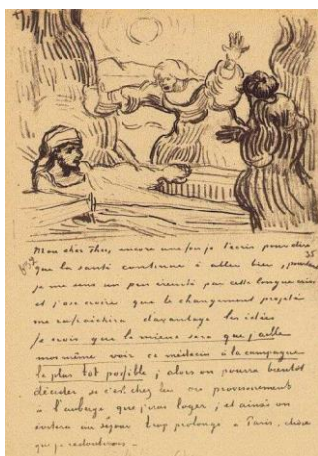 Mon cher Theo, encore une fois je t'écris pour dire
que la santé continue à aller bien, pourtant
je me sens un peu éreinté par cette longue crise
et j'ose croire que le changement projeté
me rafraichira davantage les idées
Je crois que le mieux sera que j'aille
moi même voir ce médecin à la campagne
le plus tot possible; alors on pourra bientot
décider si c'est chez lui ou provisoirement
à l'auberge que j'irai loger; et ainsi on
évitera un séjour trop prolongé à Paris, chose
que je redouterais.